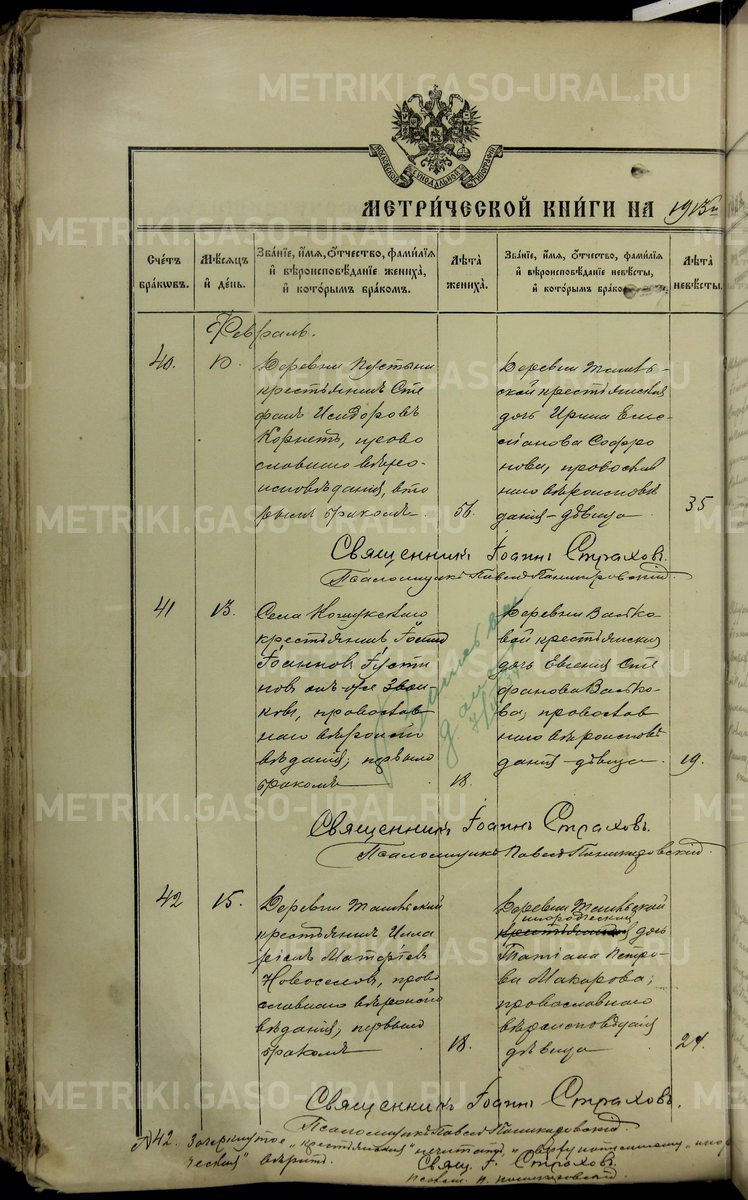 METRIKI.GASO-URAL.RU
МОСКОВСКОЙ СѴНОДАЛЬНОЙ ТИПОГРАФІИ
МЕТРИ́ЧЕСКОЙ КНИ́ГИ НА 1913 г.
Счетъ браковъ.
Мѣсяцъ и день.
Званіе, имя, отчество, фамилія и вѣроисповѣданіе жениха, и которымъ бракомъ.
Лѣта жениха.
Званіе, имя, отчество, фамилія и вѣроисповѣданіе невѣсты, и которымъ брако
Лѣта невѣсты.
Февраль.
40.
Деревни Пустыни
крестьянинъ Сте
фанъ Исидоровъ
Корнетъ, право
славнаго вѣро-
исповѣданія, вто
рымъ бракомъ.
56.
Деревни
ской крестьянская
дочь Ирина
Софро
нова, православ
наго вѣроисповѣ
данія – дѣвица
35
Священникъ Іоаннъ Страховъ.
Псаломщикъ Павелъ
41
13.
Села Ношукскаго
крестьянинъ
Іоанновъ Густи
новъ онъ-же Звон
ковъ, православ
наго вѣроиспо
вѣданія, первымъ
бракомъ
18.
Деревни Валько
вой крестьянская
дочь Евгенія Сте
фанова Валько
ва, православ
наго вѣроисповѣ
данія – дѣвица
19.
Священникъ Іоаннъ Страховъ.
Псаломщикъ Павелъ
42
15.
Деревни
крестьянинъ Илла
ріонъ
Новоселовъ, право
славнаго вѣроиспо
вѣданія, первымъ
бракомъ
18.
Деревни
инородческая
крестьянская дочь
Татіана Петро
ва Макарова,
православнаго
вѣроисповѣданія
дѣвица
24.
Священникъ Іоаннъ Страховъ.
Псаломщикъ Павелъ
№42. Зачеркнутое „крестьянская" не читать, а сверху написанному „инород
ческая" вѣрить.
Свящ. І. Страховъ.
Псалом. П.